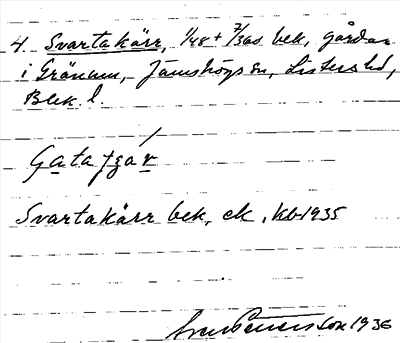 4. Svartakärr, 1/48 + 7/360 bek, gårdar
i Gränum, Jämshögs sn, Listers hd,
Blek. l.
Gatazgár
Svartakärr bek, ek, kb 1935
1936